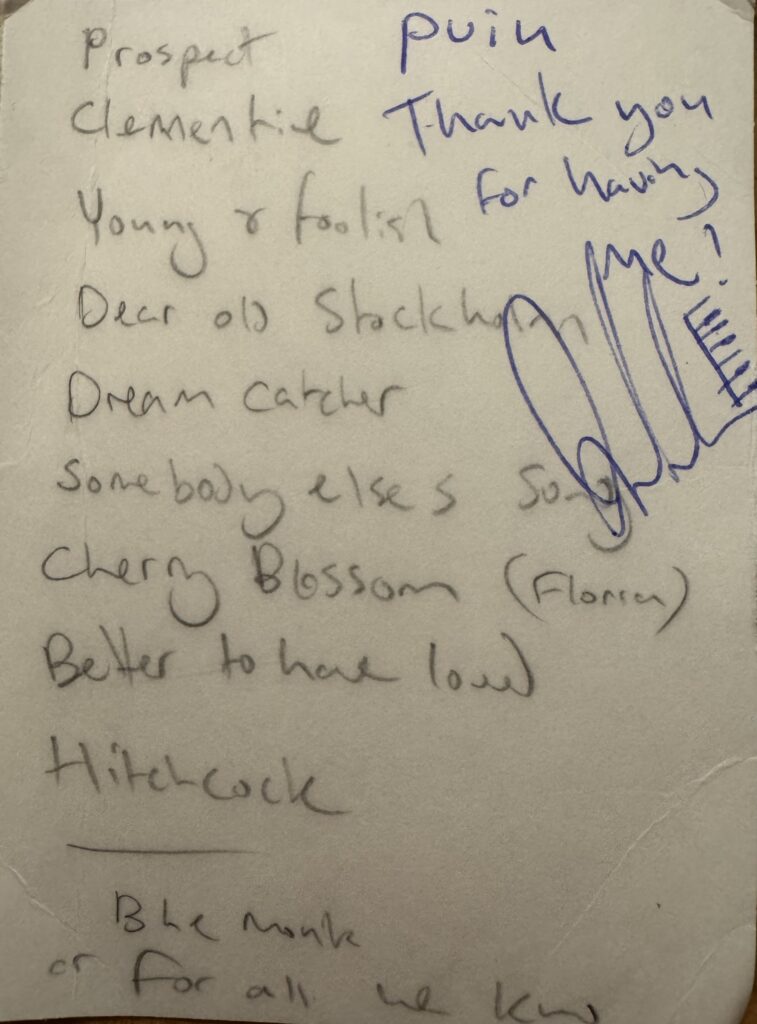 Prospect
Clementine
Young & foolish
Dear old Stockholm
Dream catcher
Somebody elses song
Cherry Blossom (Florian)
Better to have loved
Hitchcock
Blue monk
or For all we know
Thank you
for having
me!